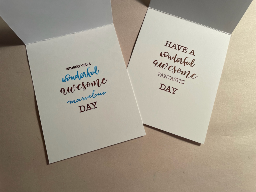 wonderful
awesome
marvelous
DAY
HAVE A
wonderful
awesome
FANTASTIC
DAY